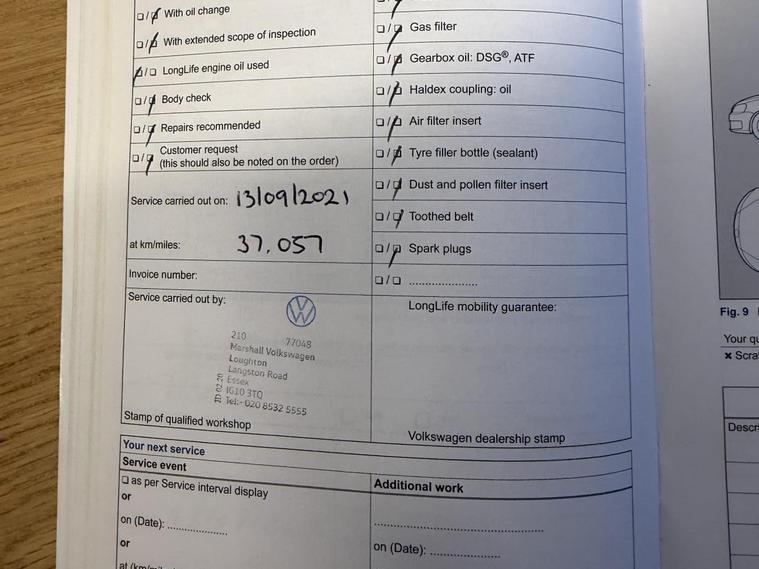 ☐/☐ With oil change
☐/☐ With extended scope of inspection
☐/☐ LongLife engine oil used
☐/☐ Body check
☐/☐ Repairs recommended
☐/☐ Customer request
(this should also be noted on the order)
Service carried out on: 13/09/2021
at km/miles: 37.057
Invoice number:
Service carried out by:
210 77048
Marshall Volkswagen
Loughton
Langston Road
Essex
IG10 3TQ
Tel:- 020 8532 5555
Stamp of qualified workshop
☐/☐ Gas filter
☐/☐ Gearbox oil: DSG®, ATF
☐/☐ Haldex coupling: oil
☐/☐ Air filter insert
☐/☐ Tyre filler bottle (sealant)
☐/☐ Dust and pollen filter insert
☐/☐ Toothed belt
☐/☐ Spark plugs
☐/☐ .....................
LongLife mobility guarantee:
Volkswagen dealership stamp
Your next service
Service event
☐ as per Service interval display
or
on (Date): ..................
or
at (km/mil
Additional work
..................................................
on (Date): .....................
Fig. 9
Your qu
× Scra
Descri